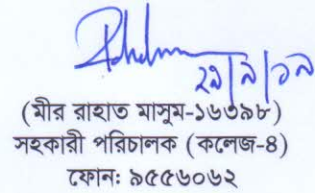 ২৯|৯|১৯
(মীর রাহাত মাসুম-১৬৩৯৮)
সহকারী পরিচালক (কলেজ-৪)
ফোনঃ ৯৫৫৬০৬২